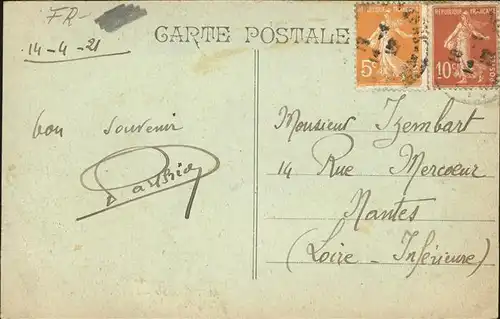 FR-
14-4-21
CARTE POSTALE
5c
REPUBLIQUE FRANÇAISE
10c
bon souvenir
Monsieur Izembart
14 Rue Mercoeur
Nantes
(Loire-Inférieure)